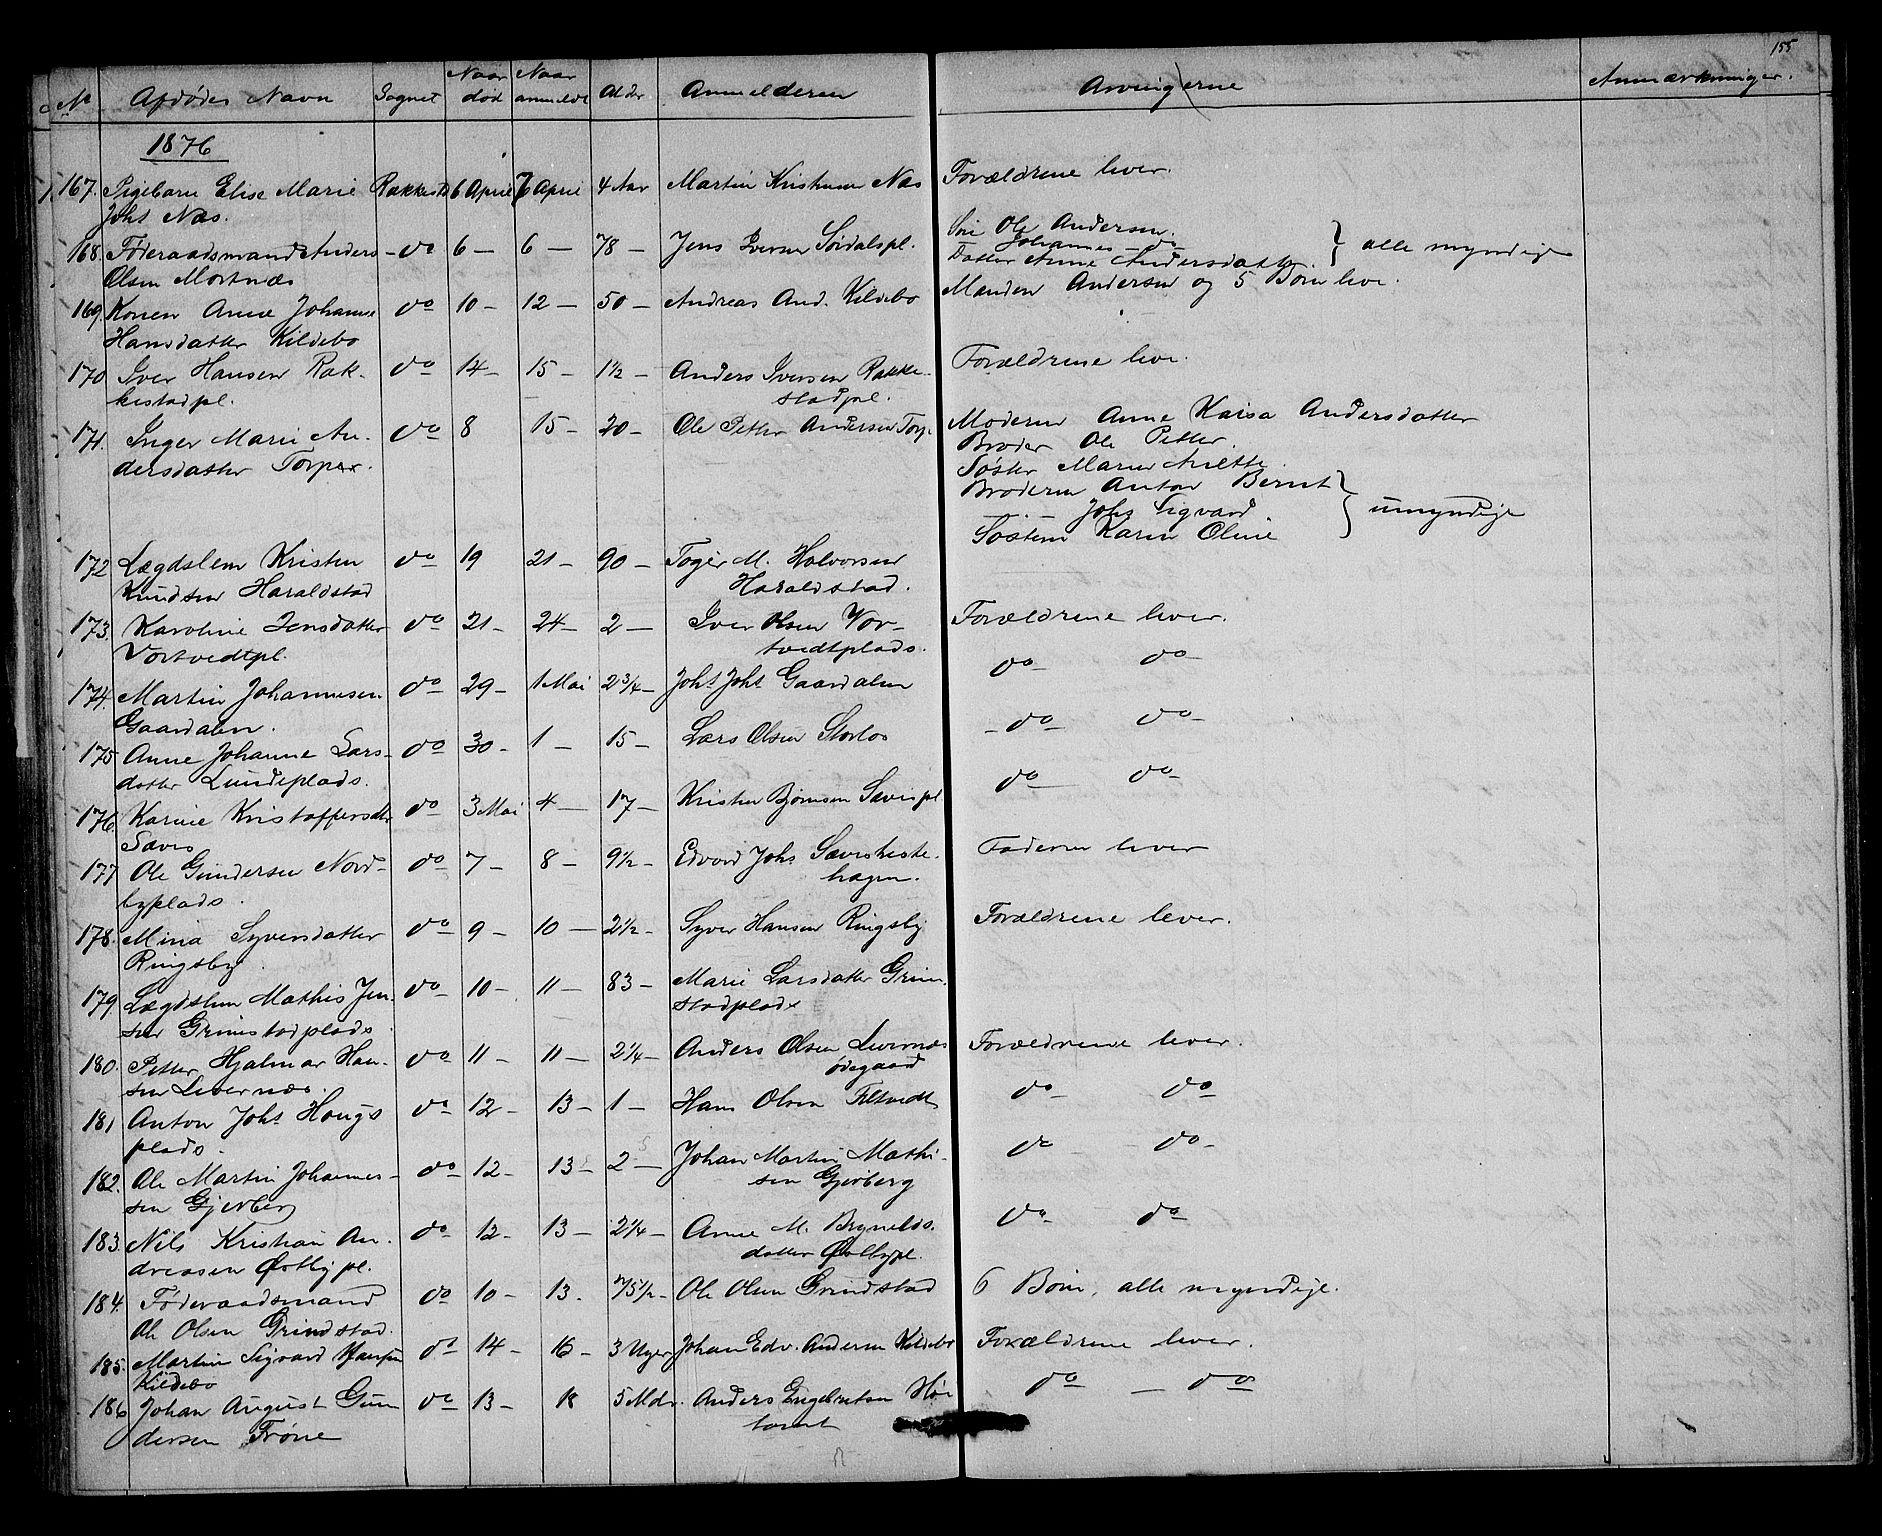 155
No Afdødes Navn Sognet Naar død Naar anmeldt Alder Anmelderen Arvingerne Anmærkninger.
1876
167. Pigebarn Elise Marie Rakkestd 6 April 7 April 4 Aar Martin Kristensen Næs Forældrene lever.
Joht Næs.
168. Føderaadsmand Anders do 6 — 6 — 78 — Jens Iversen Sørdalspl. Søn Ole Andersen.
Johannes — do
Olsen Mortnæs Datter Anne Andersdatter } alle myndige
169. Konen Anne Johanne do 10 — 12 — 50 — Andreas And. Kildebo Manden Andersen og 5 Børn leve.
Hansdatter Kildebo
170 Iver Hansen Rak- do 14 — 15 — 1½ — Anders Iversen Rakke- Forældrene leve.
kestadpl. stadpl.
171. Inger Marie An- do 8 15 — 20 — Ole Petter Andersen Torp. Moderen Anne Kaisa Andersdatter
dersdatter Torper. Broder Ole Petter.
Søster Maren
Broderen Anton Bernt
Johs Sigvard } umyndige
Søsteren Karen Oline
172 Lægdslem Kristen do 19 21 — 90 — M. Halvorsen
Knudsen Haraldstad Haraldstad.
173. Karoline Jensdatter do 21 — 24 — 2 — Iver Olsen Vor- Forældrene lever.
Vortvedtpl. tvedtplads.
174. Martin Johannesen do 29 — 1 Mai 2¾ — Joht Joht Gaardalen do do
Gaardalen.
175 Anne Johanne Lars- do 30 — 1 — 15 — Lars Olsen do do
datter Lundeplads.
176 Karine Kristoffersdtr do 3 Mai 4 — 17 — Kristen Bjørnsen Sævispl do do
Sævis
177 Ole Gundersen Nord- do 7 — 8 — 9½ — Edvard Johs Sævisheste- Faderen lever
byplads. hagen.
178. Mina Syversdatter do 9 — 10 — 2½ — Syver Hansen Ringsby Forældrene lever.
Ringsby.
179. Lægdslem Mathis Jen- do 10 — 11 — 83 — Marie Larsdatter Grim-
sen Grimstadplads. stadplads
180. Petter Hjalmar Han- do 11 — 11 — 2¼ — Anders Olsen Levernæs Forældrene lever.
sen Levernæs. ødegaard
181 Anton Joht Haugs do 12 — 13 — 1 — Hans Olsen Filtvedt do do
plads.
182. Ole Martin Johannes- do 12 — 13 — 2 — Johan Martin Mathi- do do
sen Gjerberg sen Gjerberg
183. Nils Kristian An- do 12 — 13 — 2¼ — Anne M. Brynilds- do do
dreasen Østbypl. datter Østbypl.
184. Føderaadsmand do 10 — 13. 75½ — Ole Olsen Grindstad 6 Børn, alle myndige.
Ole Olsen Grindstad.
185. Martin Sigvard Hansen do 14 — 16 — 3 Uger Johan Edv. Andersen Kildebo Forældrene lever.
Kildebo
186 Johan August Gun do 13 — 18 5 Mdr. Anders Engebretsen Høi do — do
dersen Frøne tomt